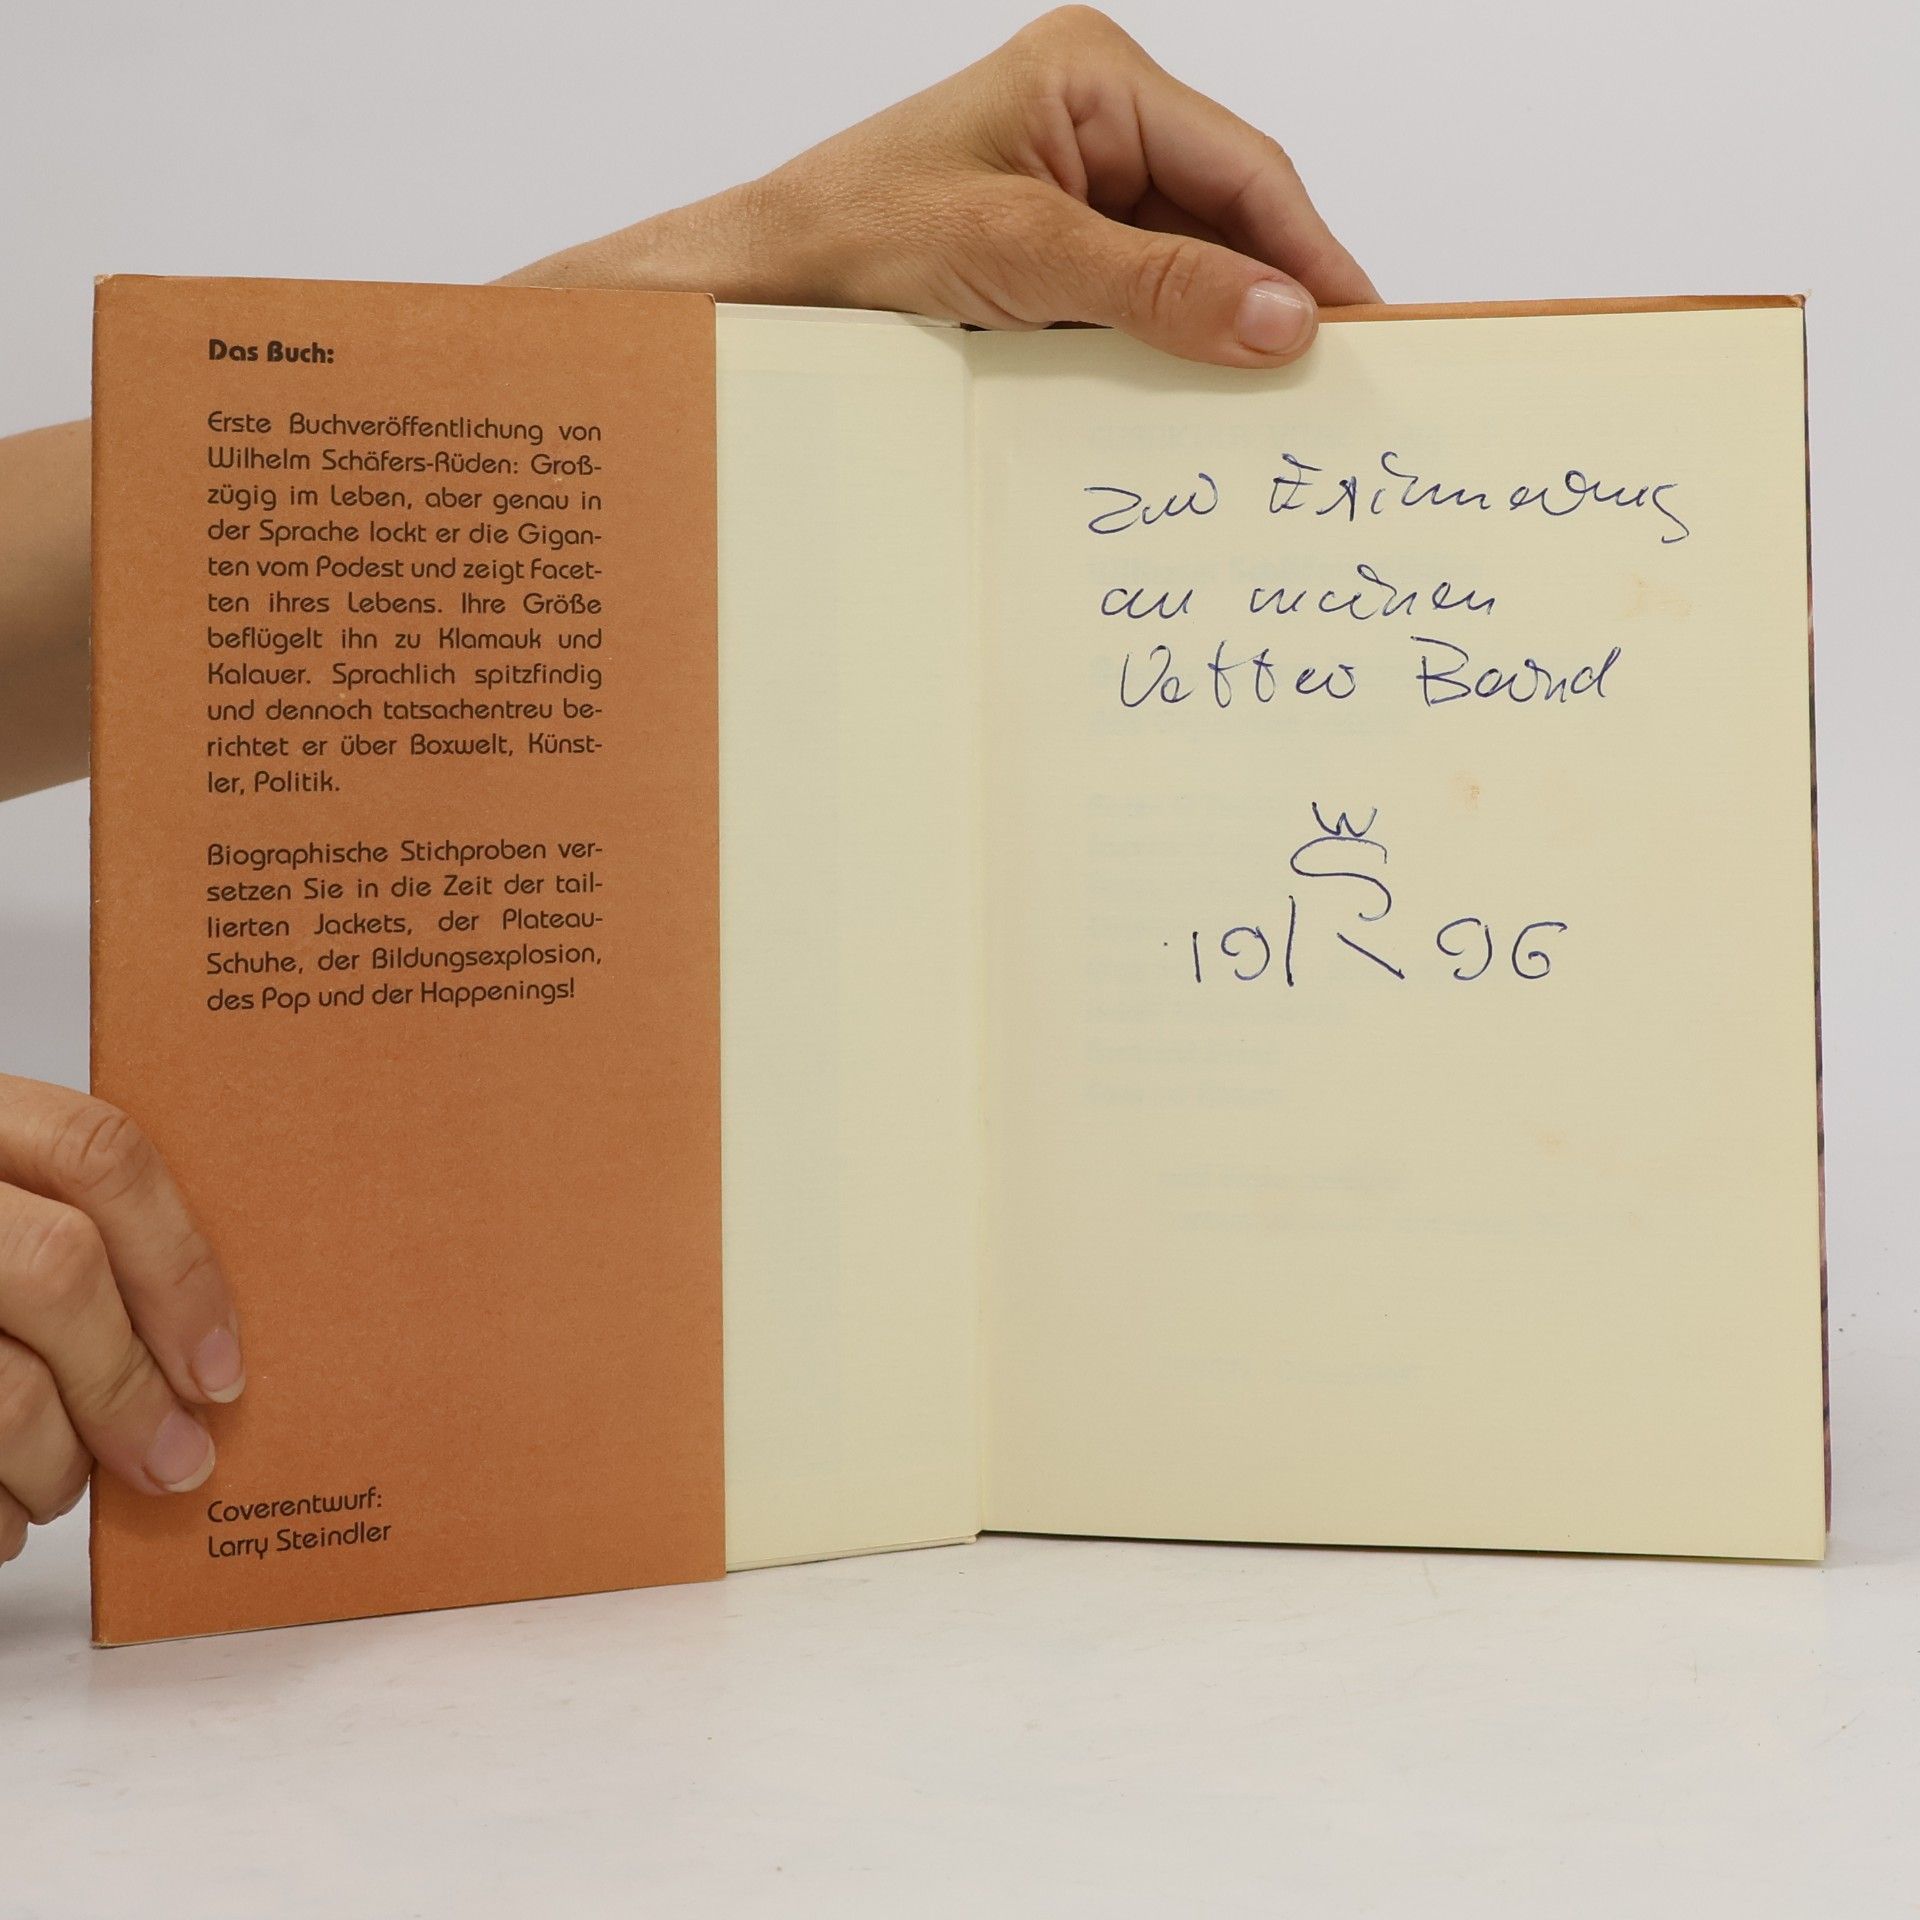 Das Buch:
Erste Buchveröffentlichung von
Wilhelm Schäfers-Rüden: Groß-
zügig im Leben, aber genau in
der Sprache lockt er die Gigan-
ten vom Podest und zeigt Facet-
ten ihres Lebens. Ihre Größe
beflügelt ihn zu Klamauk und
Kalauer. Sprachlich spitzfindig
und dennoch tatsachentreu be-
richtet er über Boxwelt, Künst-
ler, Politik.
Biographische Stichproben ver-
setzen Sie in die Zeit der tail-
lierten Jackets, der Plateau-
Schuhe, der Bildungsexplosion,
des Pop und der Happenings!
Coverentwurf:
Larry Steindler
zur Erinnerung
an meinen
Vetter Bernd
W
S
19 R 96